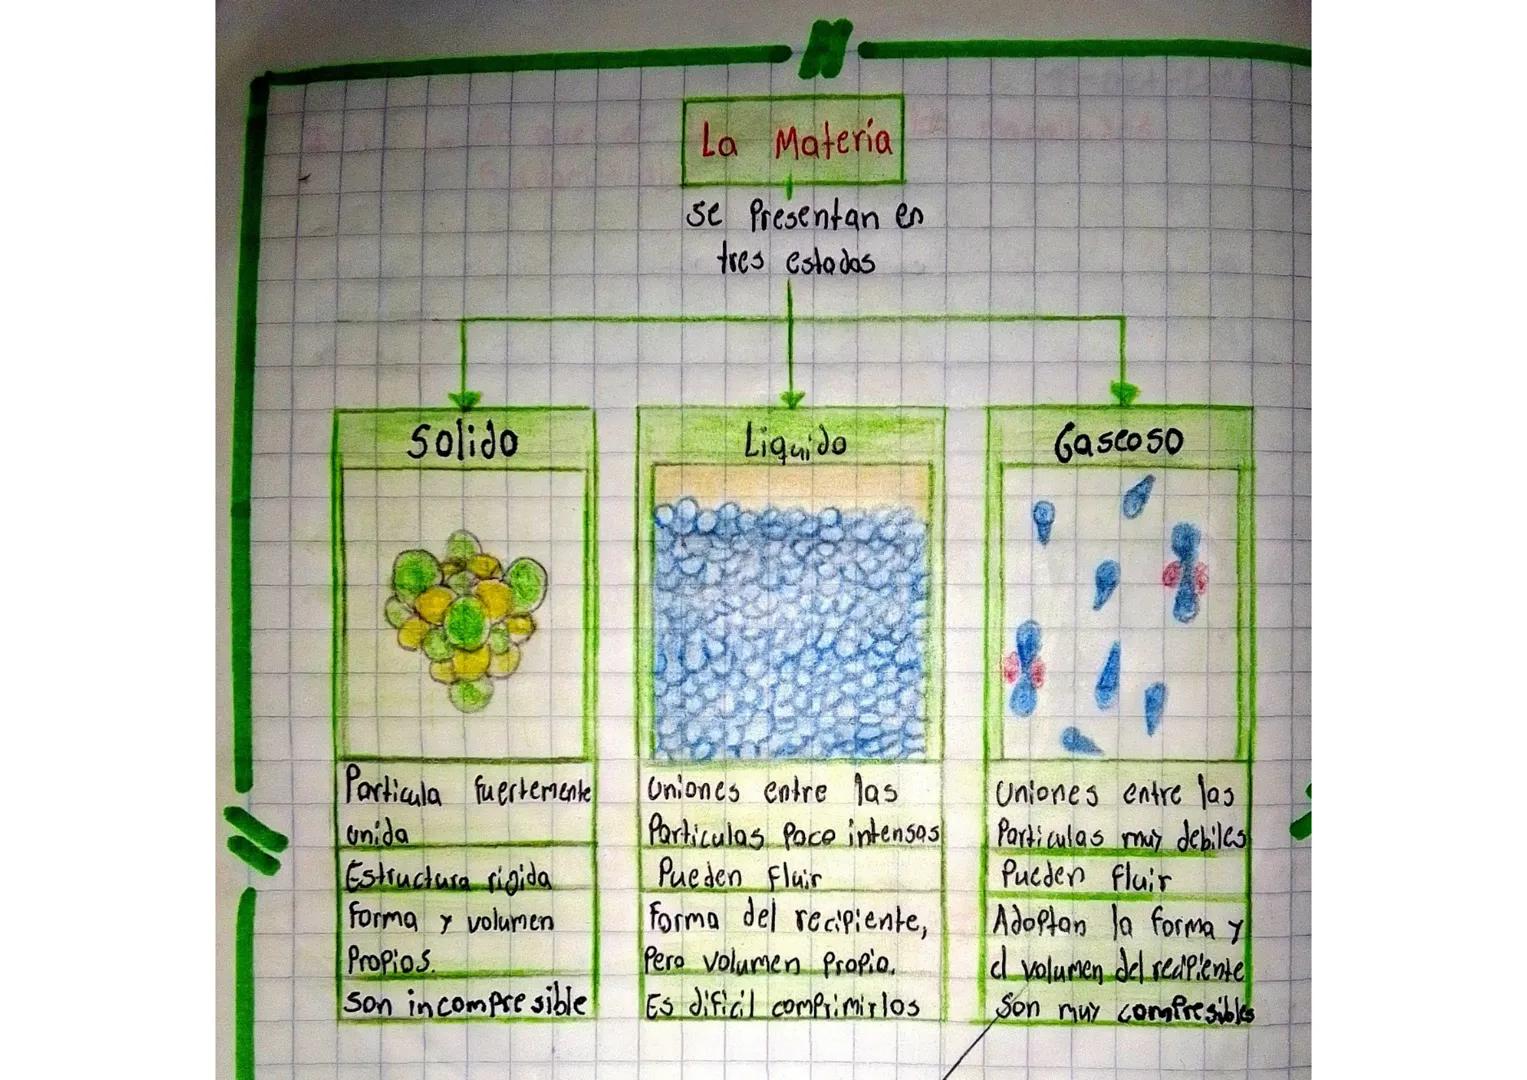 La Materia
se Presentan en
tres estados
Solido
Liquido
Gaseoso
Particula fuertemente
unida
Estructura rigida
forma y volumen
Propios.
Son incompresible
Uniones entre las
Particulas Poco intensas
Pueden Fluir
Forma del recipiente,
Pero volumen Propio.
Es dificil comprimirlos
Uniones entre las
Particulas muy debiles
Pueden fluir
Adoptan la forma y
el volumen del recipiente
Son muy compresibles